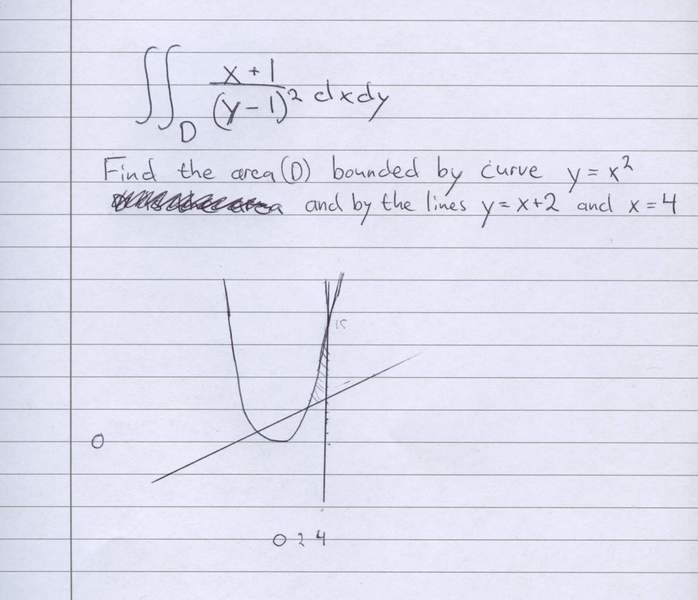 ∬_D (x+1)/(y-1)² dxdy
Find the area (D) bounded by curve y = x²
and by the lines y = x+2 and x = 4
0
0 2 4